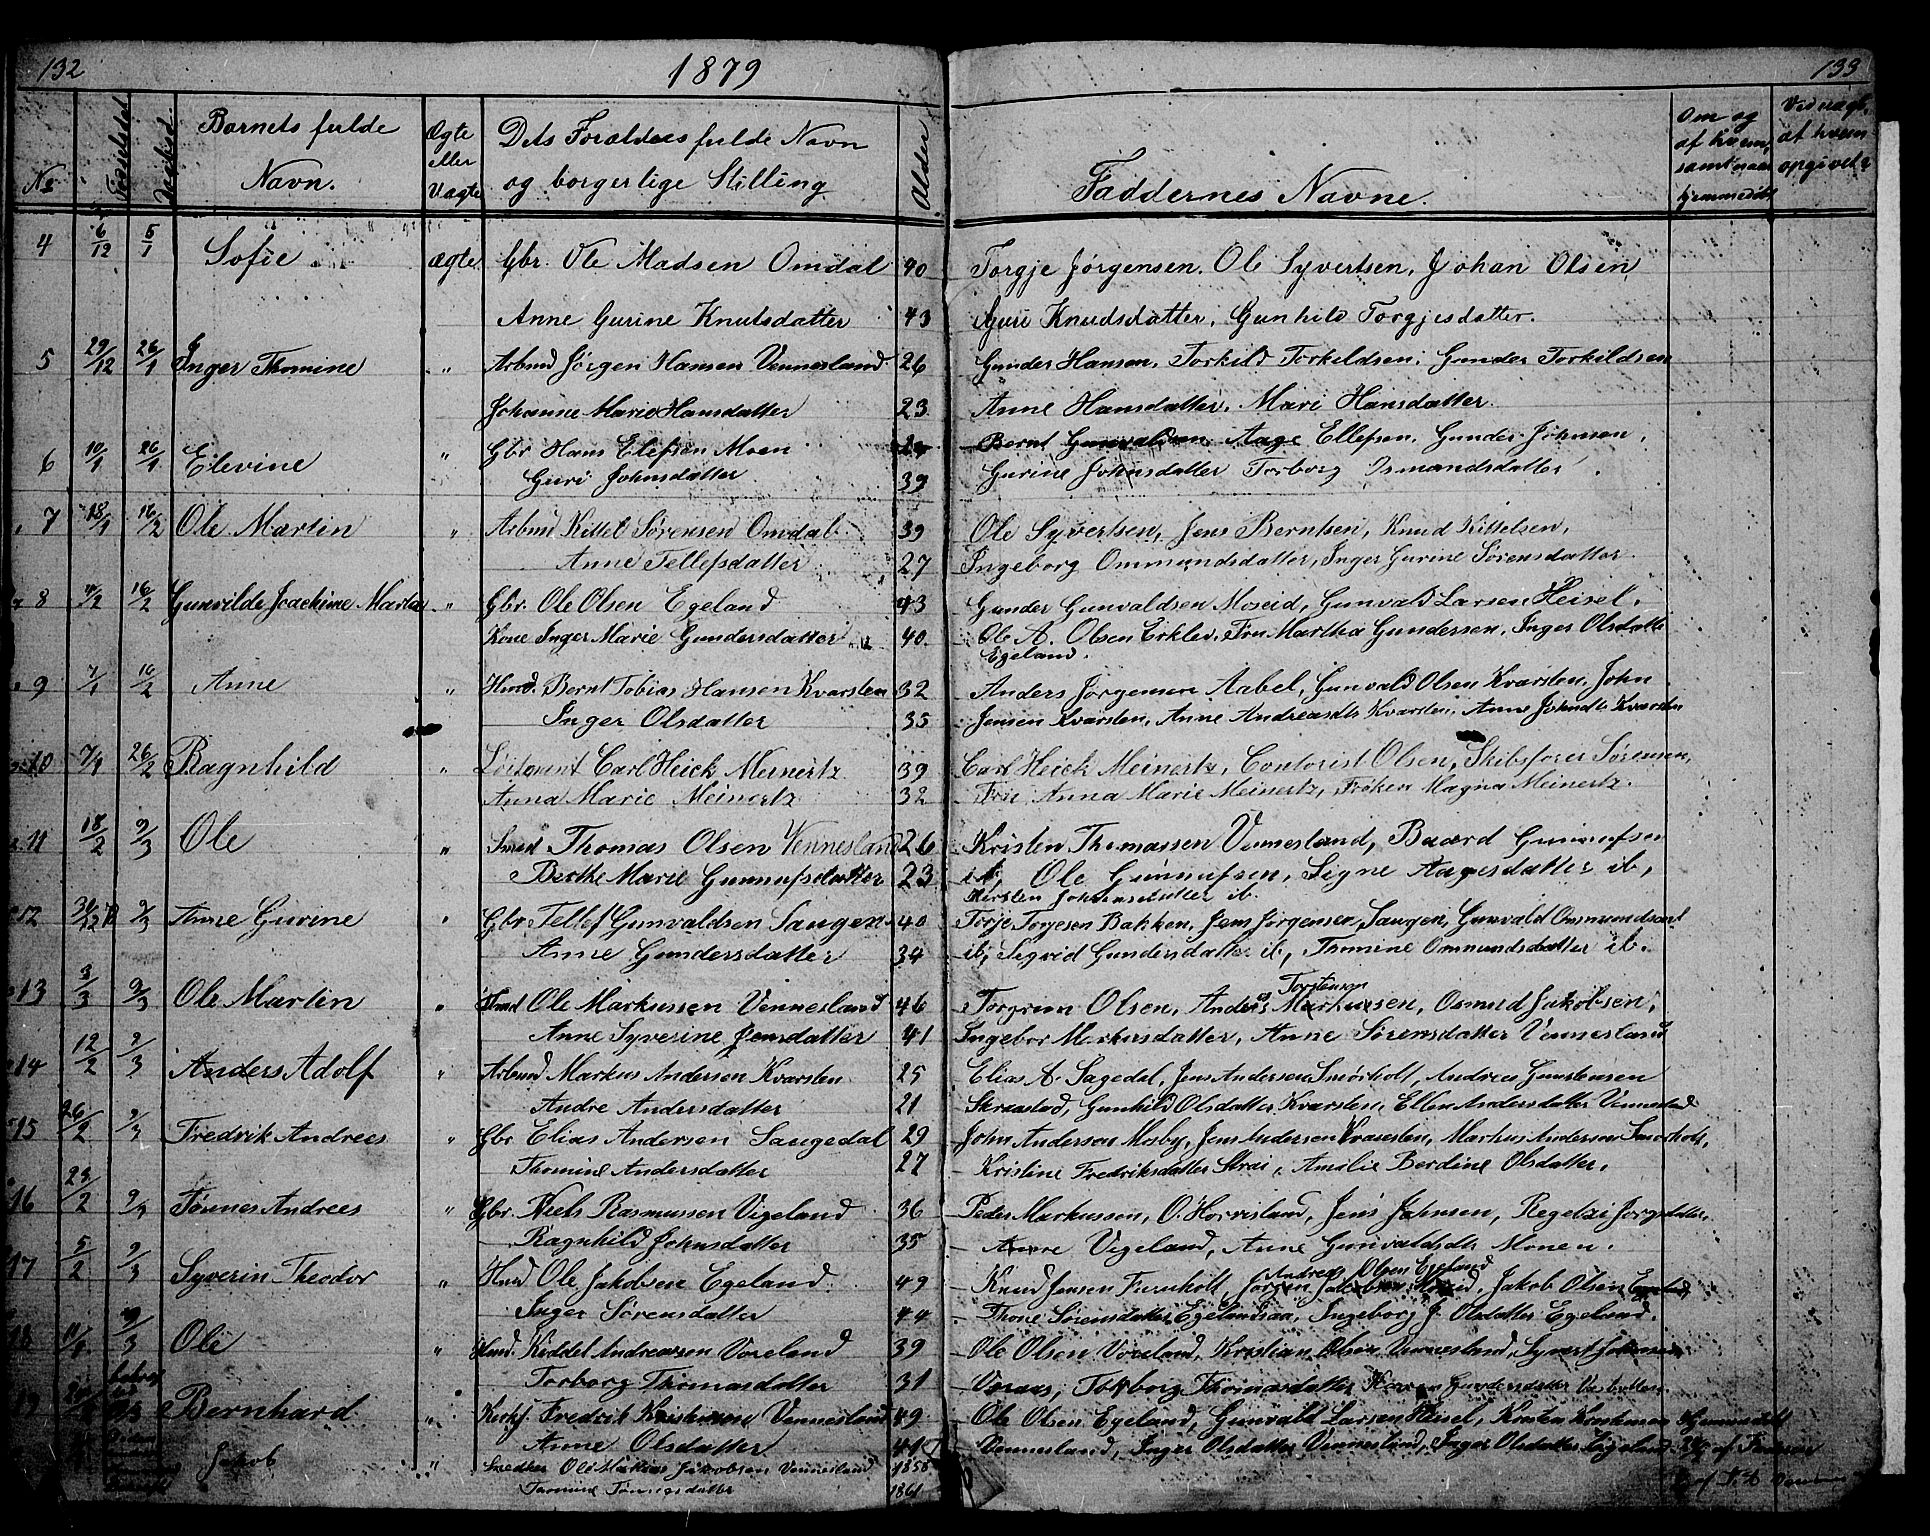 132
1879
133
No
Fødselsdat
Barnets fulde Navn.
Ægte eller Uægte
Dets Forældres fulde Navn og borgerlige Stilling
Alder
Faddernes Navne.
Om og af hvem, samt naar hjemmedøbt
Ved uægt. af hvem opgivet?
4 6/12 5/1 Sofie ægte Gbr. Ole Madsen Omdal 40 Torgje Jørgensen, Ole Syvertsen, Johan Olsen,
Anne Gurine Knutsdatter 43 Guri Knudsdatter, Gunhild Torgjesdatter.
5 29/12 26/1 Inger Thomine " Arbmd Jørgen Hansen Vennesland 26 Gunder Hansen, Torkild Torkildsen, Gunder Torkildsen
Johanne Marie Hansdatter 23 Anne Hansdatter, Mari Hansdatter.
6 10/1 26/1 Elevine " Gbr Hans Elefsen Moen Bernt Gunvaldsen, Aage Ellefsen, Gunder Johnsen,
Guri Johnsdatter 39 Gurine Johnsdatter Torborg Osmundsdatter.
7 18/1 16/2 Ole Martin " Arbmd Kittel Sørensen Omdal 39 Ole Syvertsen, Jens Berntsen, Knud Kittelsen,
Anne Tellefsdatter 27 Ingeborg Ommundsdatter, Inger Gurine Sørensdatter.
8 16/2 Gunvilde Joachime Marta " Gbr. Ole Olsen Egeland 43 Gunder Gunvaldsen Moseid, Gunvald Larsen Heisel,
Kone Inger Marie Gundersdatter 40. Ole A. Olsen Erklev, Fru Martha Gundersen, Inger Olsdatter
Egeland.
9 7/1 16/2 Anne " Hmd. Bernt Tobias Hansen Kvarsten 32 Anders Jørgensen Aabel, Gunvald Olsen Kvarsten, John
Inger Olsdatter 35 Jensen Kvarsten, Anne Andreasdtr Kvarsten, Anne Johndtr Kvarsten
10 7/1 26/2 Ragnhild " Løitnant Carl Heick Meinertz 39 Carl Heick Meinertz, Contorist Olsen, Skibsfører Sørensen,
Anna Marie Meinertz 32 Fru Anna Marie Meinertz, Frøken Magna Meinertz.
11 18/2 9/3 Ole " Smed Thomas Olsen Vennesland 26 Kristen Thomassen Vennesland, Baard Gunnufsen
Berthe Marie Gunnufsdatter 23 ib, Ole Gunnufsen, Signe Aagesdatter ib,
Kirsten Johnsdatter ib.
12 9/3 Anne Gurine " Gbr Tellef Gunvaldsen Saugen 40 Torje Torjesen Bakken, Jens Jørgensen, Saugen, Gunvald Ommundsen
Anne Gundersdatter 34 ib, Sigrid Gundersdatter ib, Thomine Ommundsdatter ib.
13 3/3 9/3 Ole Martin " Hmd Ole Markussen Vennesland 46 Torgrim Olsen, Anders Markussen, Osmund Jakobsen,
Torstensen
Anne Syverine Jensdatter 41 Ingebor Markusdatter, Anne Sørensdatter Vennesland
14 12/2 9/3 Anders Adolf " Arbmd Markus Andersen Kvarsten 25 Elias A. Sagedal, Jens Andersen Smørholt, Andreas Gunstensen
Andre Andersdatter 21 Skreastad, Gunhild Olsdatter Kvarsten, Ellen Andersdatter
15 26/2 9/3 Fredrik Andrees " Gbr Elias Andersen Saugedal 29 John Andersen Mosby, Jens Andersen Kvarsten, Markus Andersen Smørholt,
Thomine Andersdatter 27 Kristine Fredriksdatter Strai, Amilie Berdine Olsdatter.
16 23/2 9/3 Tønnes Andrees " Gbr. Niels Rasmussen Vigeland 36 Peder Markussen, O. Horrisland, Jens Johnsen, Regelzi
Ragnhild Johnsdatter 35 Anne Vigeland, Anne Gunvaldsdtr Monen.
17 5/2 9/3 Syverin Theodor " Hmd Ole Jakobsen Egeland 49 Knud Jensen Furuholt, Jørgen Moseid, Jakob Olsen Egeland
Andreas Olsen Egeland
Inger Sørensdatter 44 Thone Sørensdatter Egelandsaa, Ingeborg J. Olsdatter Egeland.
18 9/3 Ole " Hmd. Kiddel Andreassen Voreland 39 Ole Olsen Voreland, Kristian Olsen Vennesland, Syvert
Torborg Thomasdatter 31 Torborg Thomasdatter, Karen Gundersdatter
19 Bernhard " Kirkf. Fredrik Kristensen Vennesland 49 Ole Olsen Egeland, Gunvald Larsen Heisel, Kirsten
Anne Olsdatter 41 Vennesland, Inger Olsdatter Vennesland, Inger Olsdatter
Jakob " Snedker Ole Jakobsen Vennesland 1858
Tønnesdatter 1861